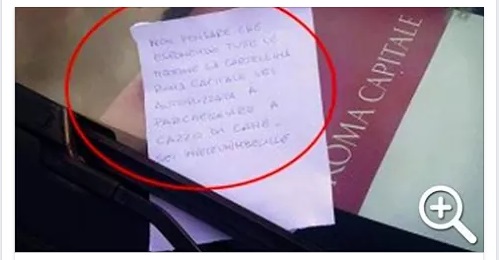 NON PENSARE CHE
ESPONENDO TUTTE LE
MATTINE LA CARTELLINA
ROMA CAPITALE SEI
AUTORIZZATA A
PARCHEGGIARE A
CAZZO DI CANE.
SEI IMBECILLE
ROMA CAPITALE